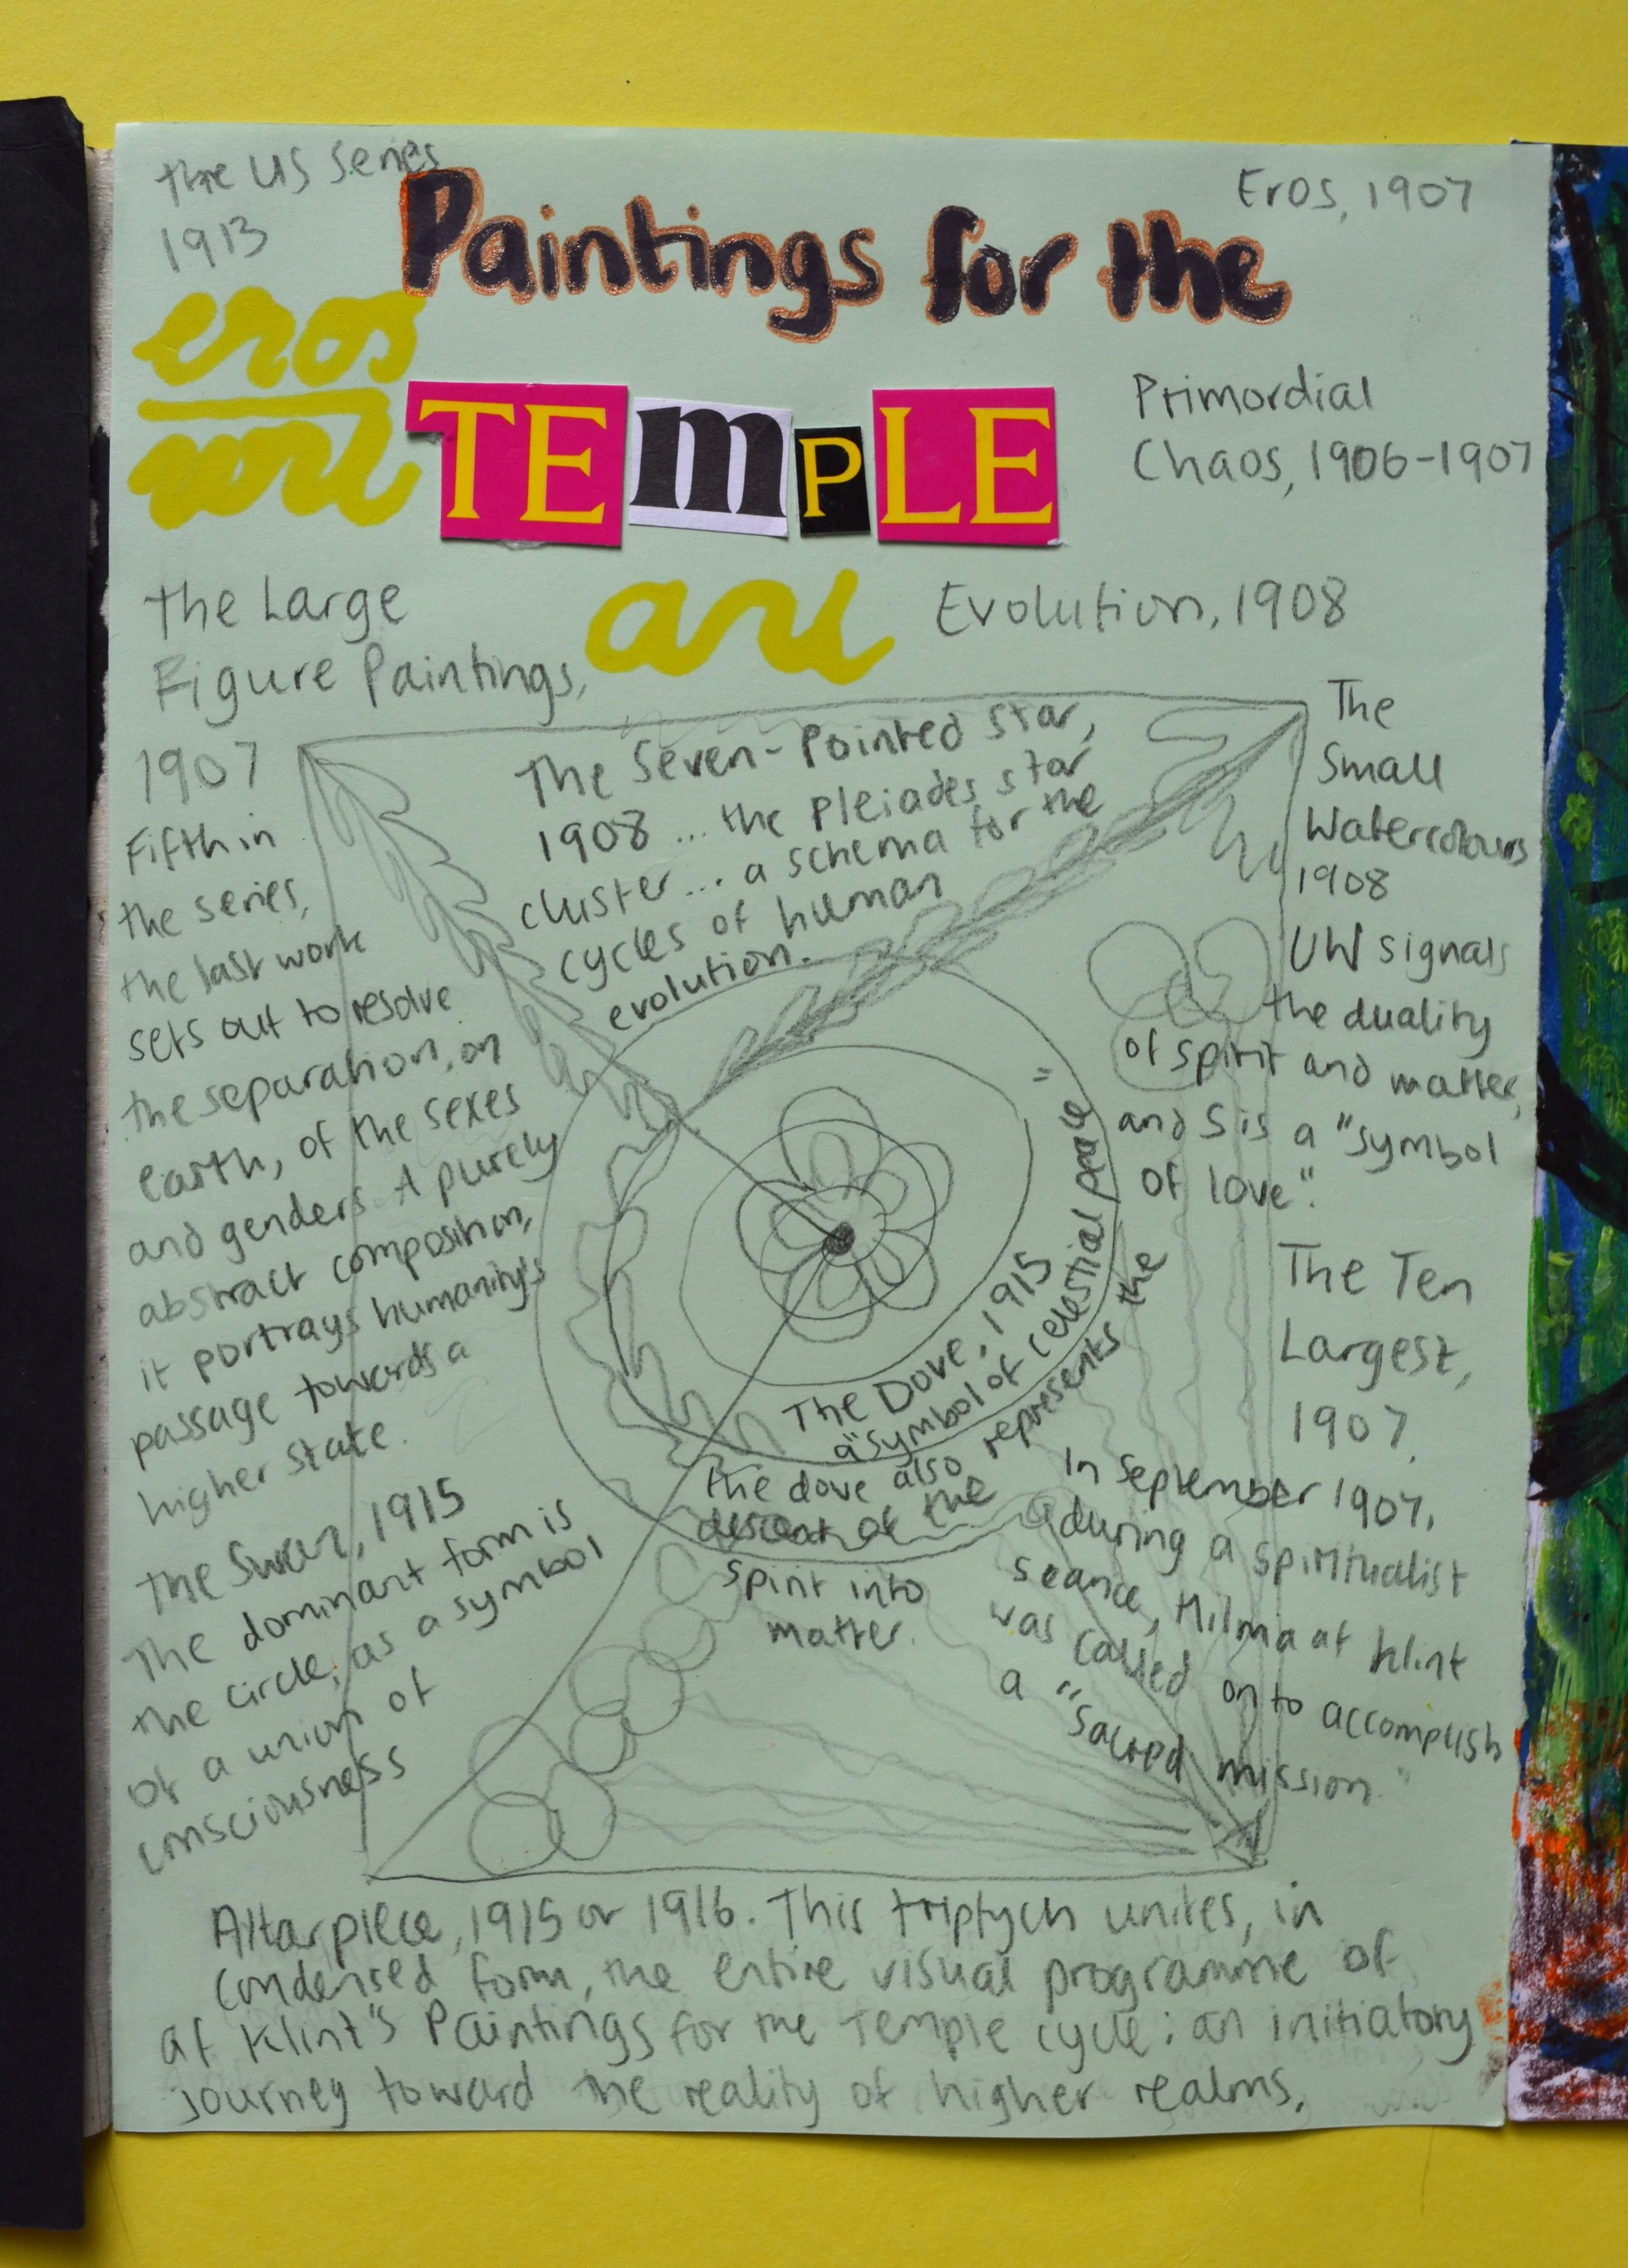 the US Series
1913
Paintings for the
Eros, 1907
eros
TEmPLE
Primordial
Chaos, 1906-1907
The Large
Figure Paintings,
1907
Evolution, 1908
The Seven-Pointed Star,
1908 ... the Pleiades star
cluster ... a schema for the
cycles of human
evolution.
The
Small
Watercolours
1908
UW signals
the duality
of spirit and matter,
and S is a "symbol
of love".
Fifth in
the series,
the last work
sets out to resolve
the separation, on
earth, of the sexes
and genders. A purely
abstract composition,
it portrays humanity's
passage towards a
higher state.
The Dove, 1915
a "symbol of celestial peace"
the dove also represents the
descent of the
spirit into
matter.
The Ten
Largest,
1907.
In September 1907,
during a spiritualist
seance, Hilma af Klint
was called on to accomplish
a "sacred mission"
The Swan, 1915
The dominant form is
the circle, as a symbol
of a union of
consciousness
Altarpiece, 1915 or 1916. This triptych unites, in
condensed form, the entire visual programme of
af Klint's Paintings for the Temple cycle: an initiatory
journey toward the reality of higher realms.